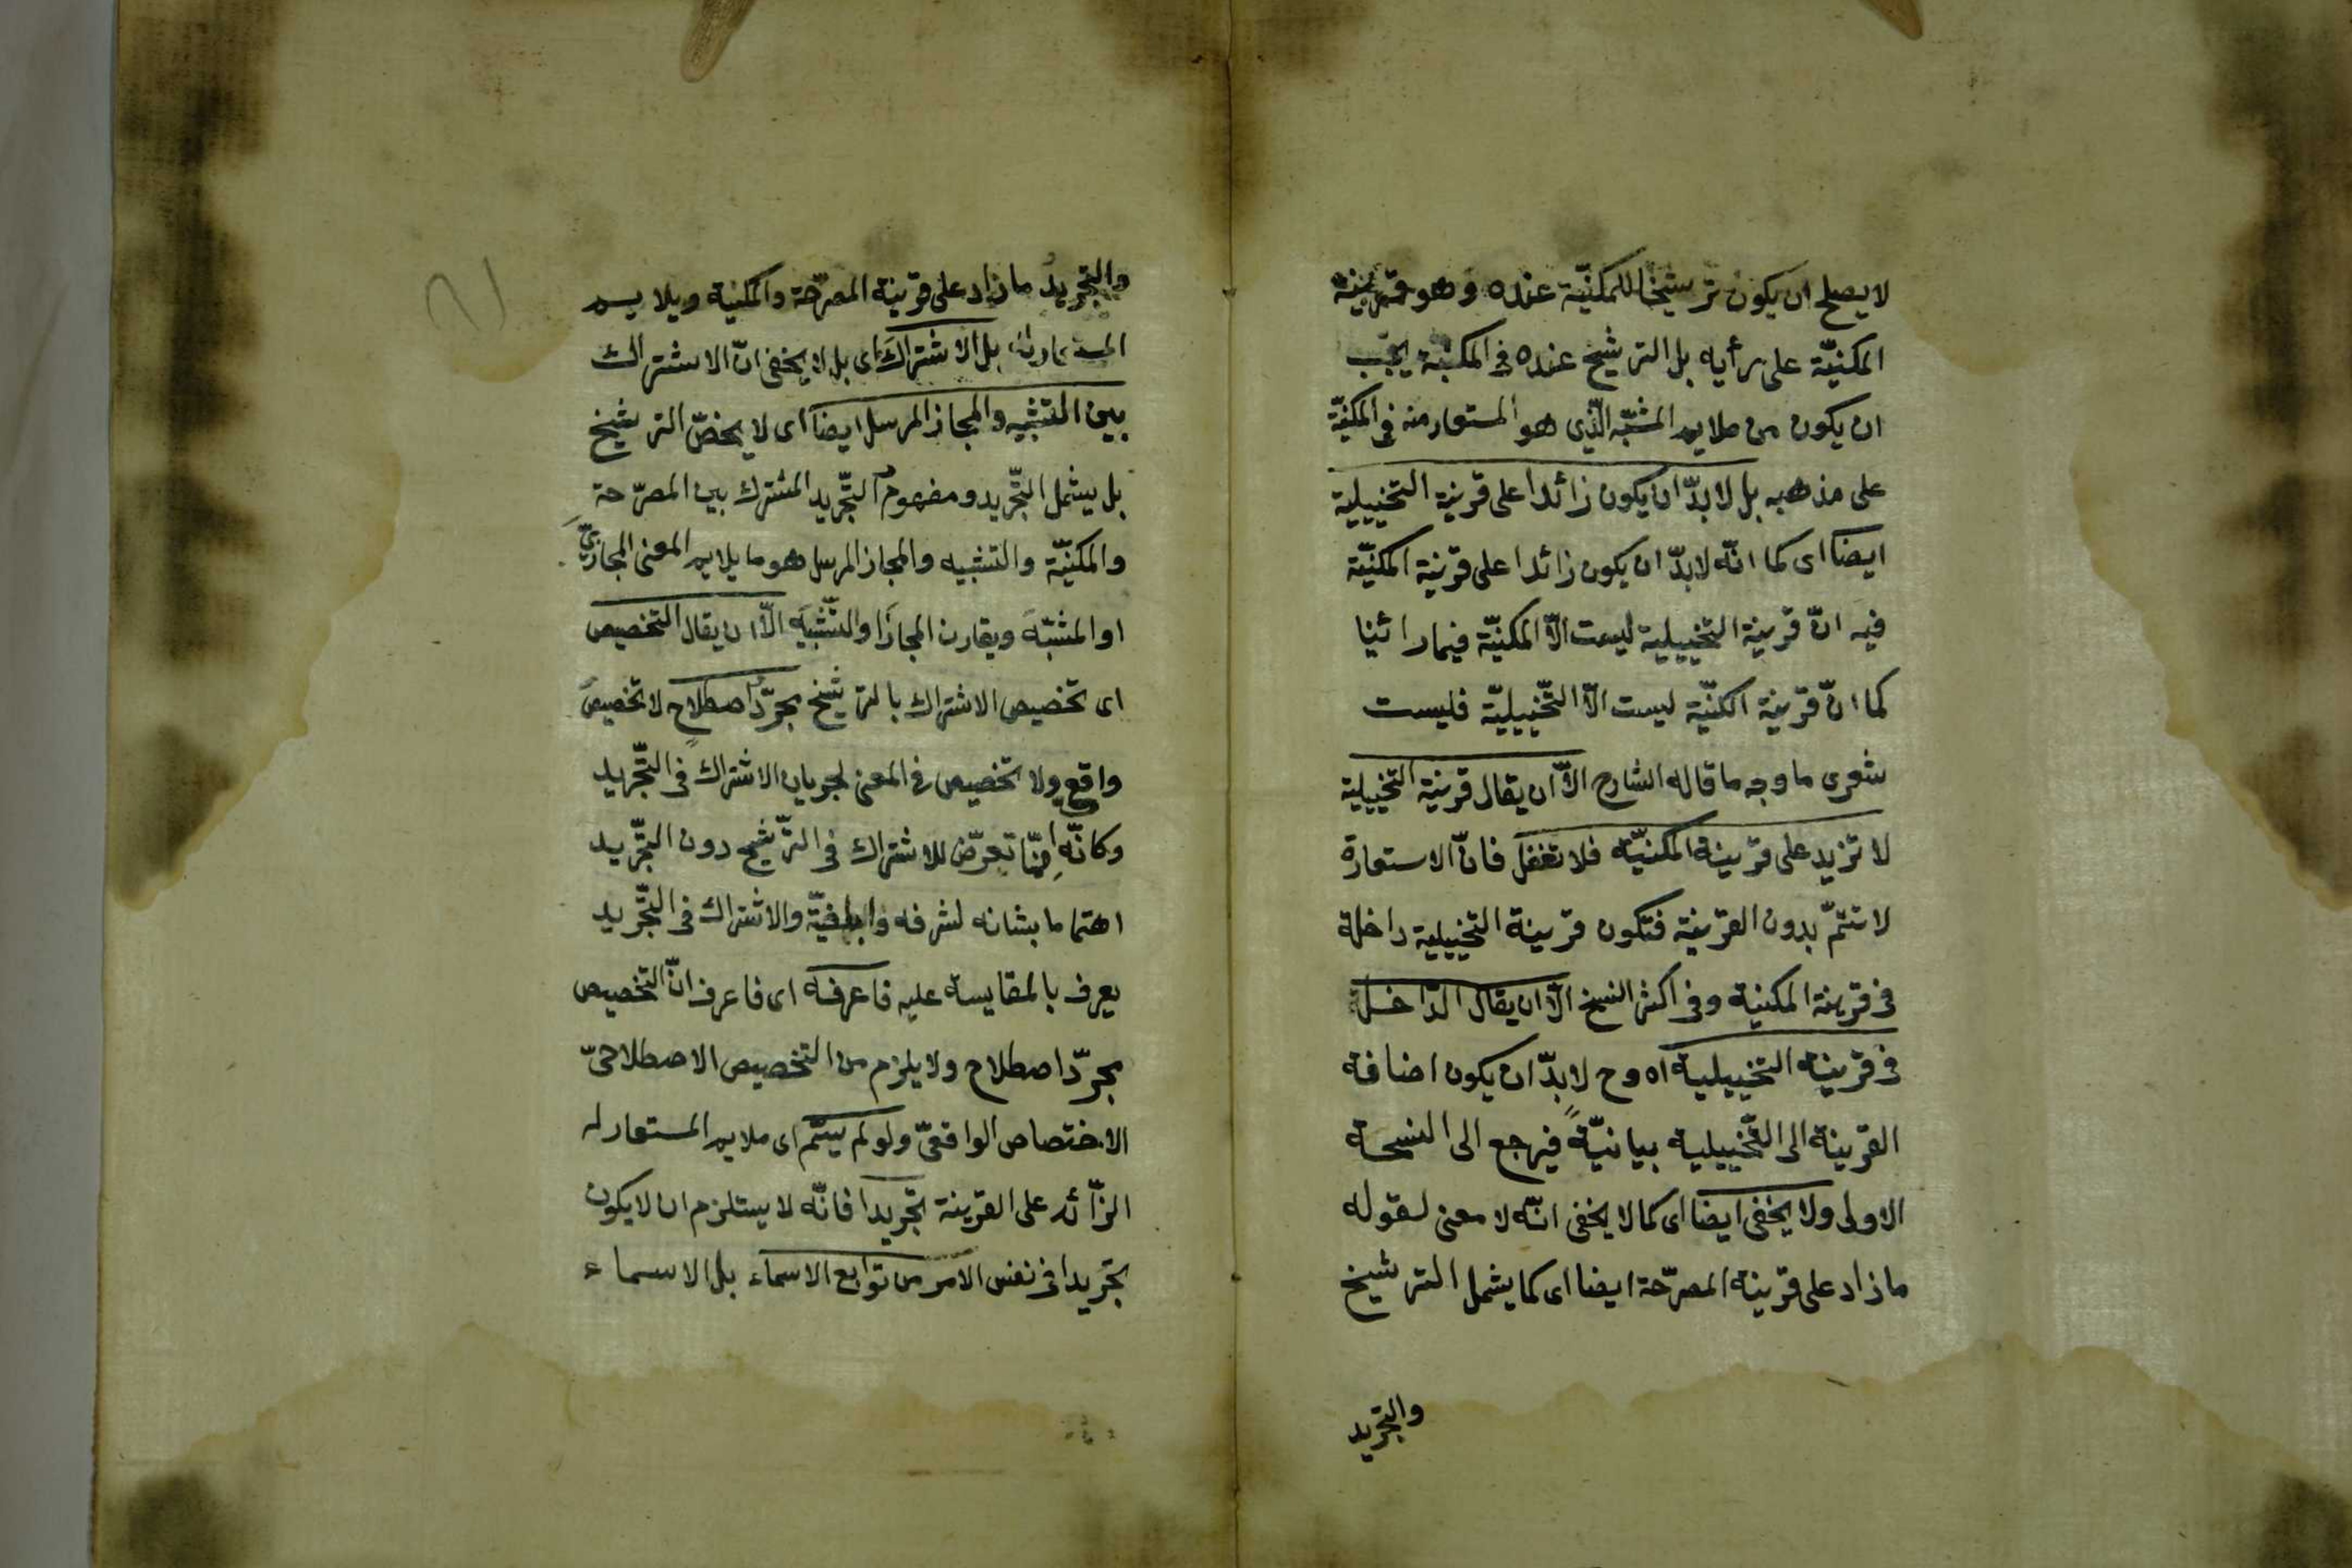 لا يصلح ان يكون ترشيخا للمكنيّة عنده وهو قرينة
المكنيّة على رأيه بل الترشيخ عنده فى المكنية يجب
ان يكون من ملايم المشبّه الّذى هو المستعار منه فى المكنيّة
على مذهبه بل لا بدّ ان يكون زائدا على قرينة التخييلية
ايضا اى كما انّه لا بدّ ان يكون زائدا على قرينة المكنيّة
فيه انّ قرينة التخييلية ليست الّا المكنيّة فيما رائينا
كما انّ قرينة الكنيّة ليست الّا التّخييليّة فليست
شعرى ما وجه ما قاله الشارح الّا ان يقال قرينة التخييلية
لا تزيد على قرينة المكنيّة فلا تغفل فانّ الاستعارة
لا تتمّ بدون القرينة فتكون قرينة التخييلية داخلة
فى قرينة المكنية وفى اكثر النسخ الّا ان يقال الدّاخل
فى قرينة التخييلية اه وح لا بدّ ان يكون اضافة
القرينة الى التّخييلية بيانيّةً فيرجع الى النسخة
الاولى ولا يخفى ايضا اى كما لا يخفى انّه لا معنى لقوله
ما زاد على قرينة المصرّحة ايضا اى كما يشمل الترشيخ
والتجريد
والتجريد ما زاد على قرينة المصرّحة والمكنية ويلايم
المستعار له بل الاشتراك اى بل لا يخفى انّ الاشتراك
بين التشبيه والمجاز المرسل ايضا اى لا يخصّ الترشيخ
بل يشمل التّجريد ومفهوم التّجريد المشترك بين المصرّحة
والمكنيّة والتشبيه والمجاز المرسل هو ما يلايم المعنى المجازىّ
او المشبّه ويقارن المجاز او التّشبيه الّا ان يقال التخصيص
اى تخصيص الاشتراك بالترشيخ مجرّد اصطلاح لا تخصيص
واقع ولا تخصيص فى المعنى لجريان الاشتراك فى التّجريد
وكانّه انّما تعرّض للاشتراك فى التّرشيح دون التّجريد
اهتماما بشانه لشرفه والاشتراك فى التّجريد
يعرف بالمقايسة عليه فاعرفه اى فاعرف انّ التخصيص
مجرّد اصطلاح ولا يلزم من التخصيص الاصطلاحىّ
الاختصاص الواقعىّ ولو لم يسمّ اى ملايم المستعار له
الزّائد على القرينة تجريدا فانّه لا يستلزم ان لا يكون
تجريدا فى نفس الامر من توابع الاسماء بل الاسماء